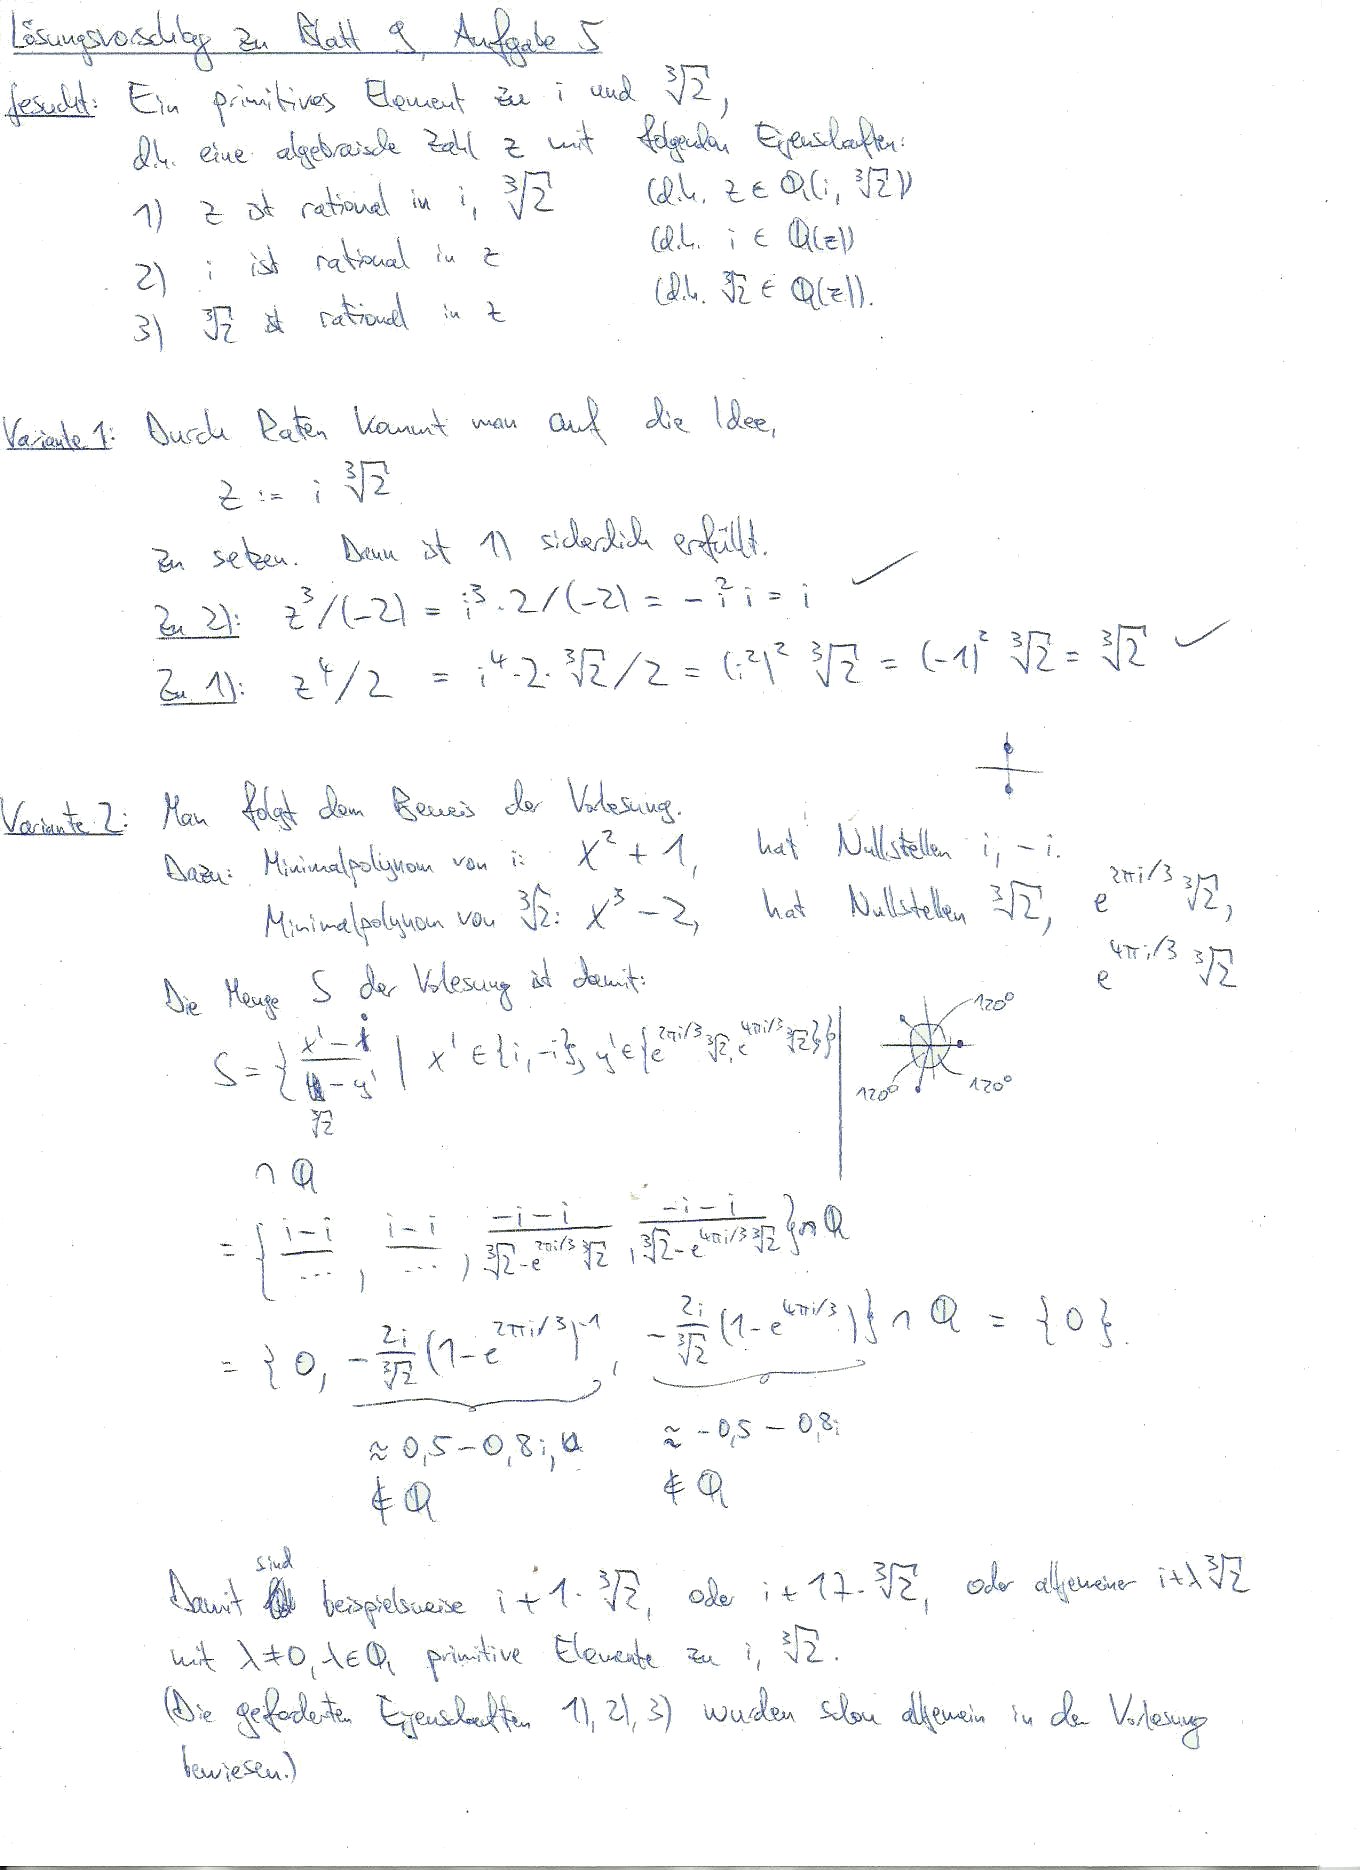 Lösungsvorschlag zu Blatt 9, Aufgabe 5
Gesucht: Ein primitives Element zu i und ∛2,
d.h. eine algebraische Zahl z mit folgenden Eigenschaften:
1) z ist rational in i, ∛2 (d.h. z ∈ ℚ(i, ∛2))
2) i ist rational in z (d.h. i ∈ ℚ(z))
3) ∛2 ist rational in z (d.h. ∛2 ∈ ℚ(z)).
Variante 1: Durch Raten kommt man auf die Idee,
z := i ∛2
zu setzen. Dann ist 1) sicherlich erfüllt.
Zu 2): z³/(-2) = i³·2/(-2) = -i² i = i ✓
Zu 1): z⁴/2 = i⁴·2·∛2/2 = (i²)² ∛2 = (-1)² ∛2 = ∛2 ✓
Variante 2: Man folgt dem Beweis der Vorlesung.
Dazu: Minimalpolynom von i: X² + 1, hat Nullstellen i, -i.
Minimalpolynom von ∛2: X³ - 2, hat Nullstellen ∛2, e^{2πi/3} ∛2,
e^{4πi/3} ∛2
Die Menge S der Vorlesung ist damit:
S = { (x' - i)/(∛2 - y') | x' ∈ {i, -i}, y' ∈ {e^{2πi/3} ∛2, e^{4πi/3} ∛2}}
120°
120° 120°
∩ ℚ
= { (i-i)/..., (i-i)/..., (-i-i)/(∛2 - e^{2πi/3} ∛2), (-i-i)/(∛2 - e^{4πi/3} ∛2) } ∩ ℚ
= { 0, -2i/∛2 (1-e^{2πi/3})^{-1}, -2i/∛2 (1-e^{4πi/3}) } ∩ ℚ = {0}.
≈ 0,5 - 0,8i, ≈ -0,5 - 0,8i
∉ ℚ ∉ ℚ
Damit sind beispielsweise i + 1·∛2, oder i + 17·∛2, oder allgemeiner i+λ∛2
mit λ≠0, λ∈ℚ, primitive Elemente zu i, ∛2.
(Die geforderten Eigenschaften 1), 2), 3) wurden schon allgemein in der Vorlesung
bewiesen.)